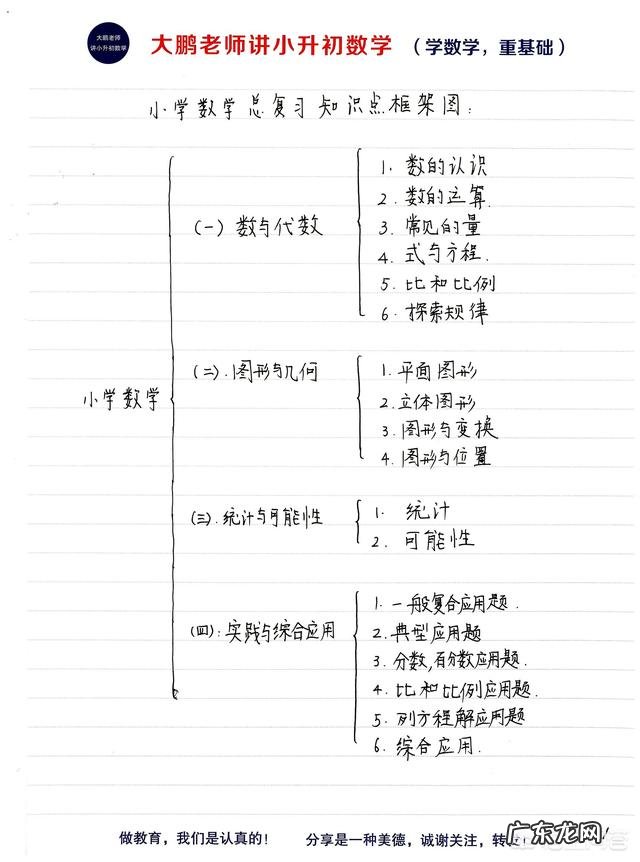 大鹏老师
讲小升初数学
大鹏老师讲小升初数学 （学数学，重基础）
小学数学总复习知识点框架图:
小学数学
(一) 数与代数
1. 数的认识
2. 数的运算.
3. 常见的量
4. 式与方程.
5. 比和比例
6. 探索规律
(二).图形与几何
1.平面图形
2.立体图形
3.图形与变换
4.图形与位置
(三).统计与可能性
1. 统计
2. 可能性
(四): 实践与综合应用
1.一般复合应用题.
2.典型应用题
3.分数,百分数应用题.
4.比和比例应用题.
5.列方程解应用题
6.综合应用.
做教育，我们是认真的！ 分享是一种美德，诚谢关注，转
广东龙网